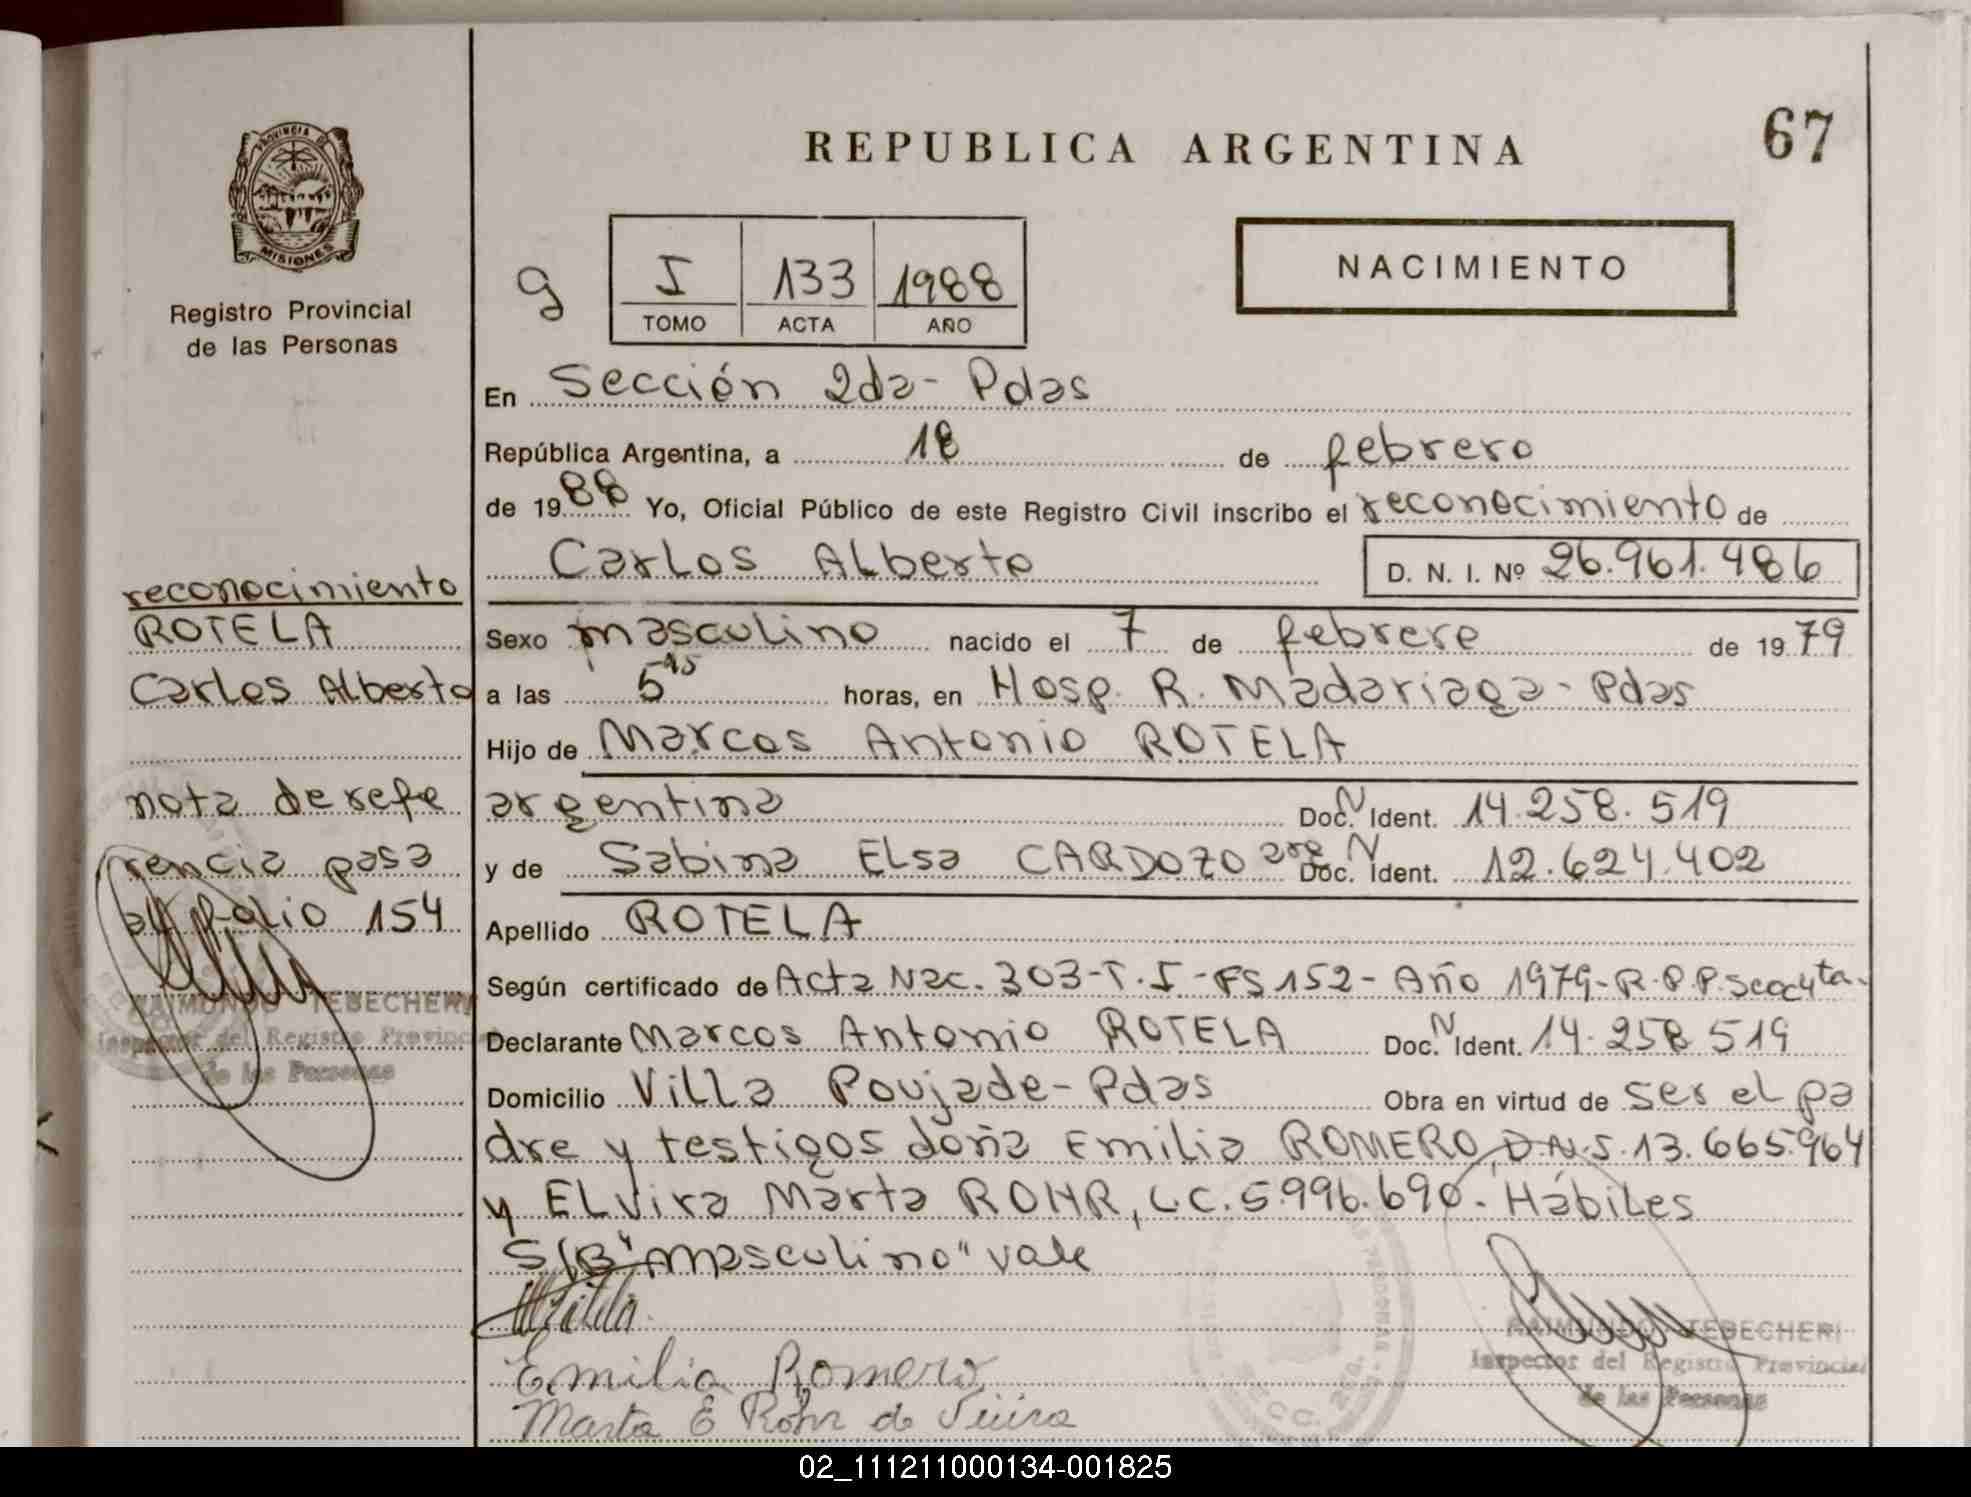 67
REPUBLICA ARGENTINA
PROVINCIA DE
MISIONES
Registro Provincial
de las Personas
g
I 133 1988
TOMO ACTA AÑO
NACIMIENTO
En Sección 2da- Pdas
República Argentina, a 18 de febrero
de 1988 Yo, Oficial Público de este Registro Civil inscribo el reconocimiento de
Carlos Alberto D. N. I. Nº 26.961.486
reconocimiento
ROTELA
Carlos Alberto
nota de refe
rencia pasa
al folio 154
RAIMUNDO TEBECHERI
Inspector del Registro Provincial
de las Personas
Sexo masculino nacido el 7 de febrero de 1979
a las 5 15 horas, en Hosp. R. Madariaga- Pdas
Hijo de Marcos Antonio ROTELA
argentina Doc. N Ident. 14.258.519
y de Sabina Elsa CARDOZO arg Doc. N Ident. 12.624.402
Apellido ROTELA
Según certificado de Acta Nac. 303-T.I-Fs 152- Año 1979-R.P.P. Secc 4ta-
Declarante Marcos Antonio ROTELA Doc. N Ident. 14.258 519
Domicilio Villa Poujade- Pdas Obra en virtud de ser el pa
dre y testigos doña Emilia ROMERO, D.N.I. 13.665.964
y ELvira Marta ROHR, L.C. 5.996.690- Hábiles
S/B "masculino" vale
Emilia Romero
Marta E Rohr de
RAIMUNDO TEBECHERI
Inspector del Registro Provincial
de las Personas
02_111211000134-001825